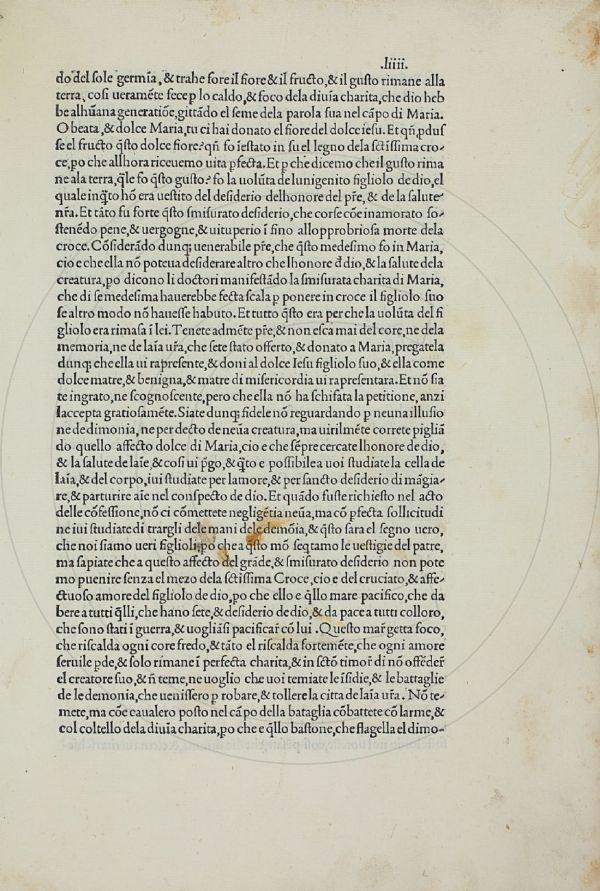 .liiii.
do del sole germía, & trahe fore il fiore & il fructo, & il gusto rimane alla
terra, cosi ueraméte fece p lo caldo, & foco dela diuía charita, che dio heb
be alhūana generatiõe, gittãdo el seme dela parola sua nel cãpo di Maria.
O beata, & dolce Maria, tu ci hai donato el fiore del dolce iesu. Et qñ, pdus
se el fructo q̃sto dolce fiore? qñ fo iestato in su el legno dela sctissima cro-
ce, po che allhora riceuemo uita pfecta. Et p che dicemo che il gusto rima
ne ala terra, q̃le fo q̃sto gusto? fo la uolũta del unigenito figliolo de dio, el
quale inq̃to hõ era uestito del desiderio delhonore del p̃re, & de la salute-
nr̃a. Et tãto fu forte q̃sto smisurato desiderio, che corse cõe inamorato so-
stenẽdo pene, & uergogne, & uituperio í fino allopprobriosa morte dela
croce. Cõsiderãdo dunq; uenerabile p̃re, che q̃sto medesimo fo in Maria,
cio e che ella nõ poteua desiderare altro che lhonore đ dio, & la salute dela
creatura, po dicono li doctori manifestãdo la smisurata charita di Maria,
che di se medesima hauerebbe fecta scala p ponere in croce il figliolo suo
se altro modo nõ hauesse habuto. Et tutto q̃sto era per che la uolũta del fi
gliolo era rimasa í lei. Tenete admẽte p̃re, & non esca mai del core, ne dela
memoria, ne de laía ur̃a, che sete stato offerto, & donato a Maria, pregatela
dunq; che ella ui rapresente, & doni al dolce Iesu figliolo suo, & ella come
dolce matre, & benigna, & matre di misericordia ui rapresentara. Et nõ sia
te ingrato, ne scognoscente, pero che ella nõ ha schifata la petitione, anzi
laccepta gratiosamẽte. Siate dunq; fidele nõ reguardando p neuna illusio
ne de dimonia, ne per decto de neũa creatura, ma uirilmẽte correte pigliã
do quello affecto dolce di Maria, cio e che sẽpre cercate lhonore de dio,
& la salute de laíe, & cosi ui p̃go, & q̃to e possibile a uoi studiate la cella de
laía, & del corpo, iui studiate per lamore, & per sancto desiderio di mãgia-
re, & parturire aíe nel conspecto de dio. Et quãdo fuste richiesto nel acto
delle cõfessione, nõ ci cõmettete negligẽtia neũa, ma cõ pfecta sollicitudi
ne iui studiate di trargli dele mani dele demõia, & q̃sto sara el segno uero,
che noi siamo ueri figlioli, po che a q̃sto mõ seq̃tamo le uestigie del patre,
ma sapiate che a questo affecto del grãde, & smisurato desiderio non pote
mo puenire senza el mezo dela sctissima Croce, cio e del cruciato, & affe-
ctuoso amore del figliolo de dio, po che ello e q̃llo mare pacifico, che da
bere a tutti q̃lli, che hano sete, & desiderio de dio, & da pace a tutti colloro,
che sono stati í guerra, & uogliãsi pacificar̃ cõ lui. Questo mar̃ getta foco,
che riscalda ogni core fredo, & tãto el riscalda fortemẽte, che ogni amore
seruile pde, & solo rímane í perfecta charita, & in sctõ timor̃ di nõ offẽder̃
el creatore suo, & ñ teme, ne uoglio che uoi temiate le ísidie, & le battaglie
de le demonia, che uenissero p robare, & tollere la citta de laía ur̃a. Nõ te-
mete, ma cõe caualero posto nel cãpo della bataglia cõbattete cõ larme, &
col coltello dela diuía charita, po che e q̃llo bastone, che flagella el dimo-